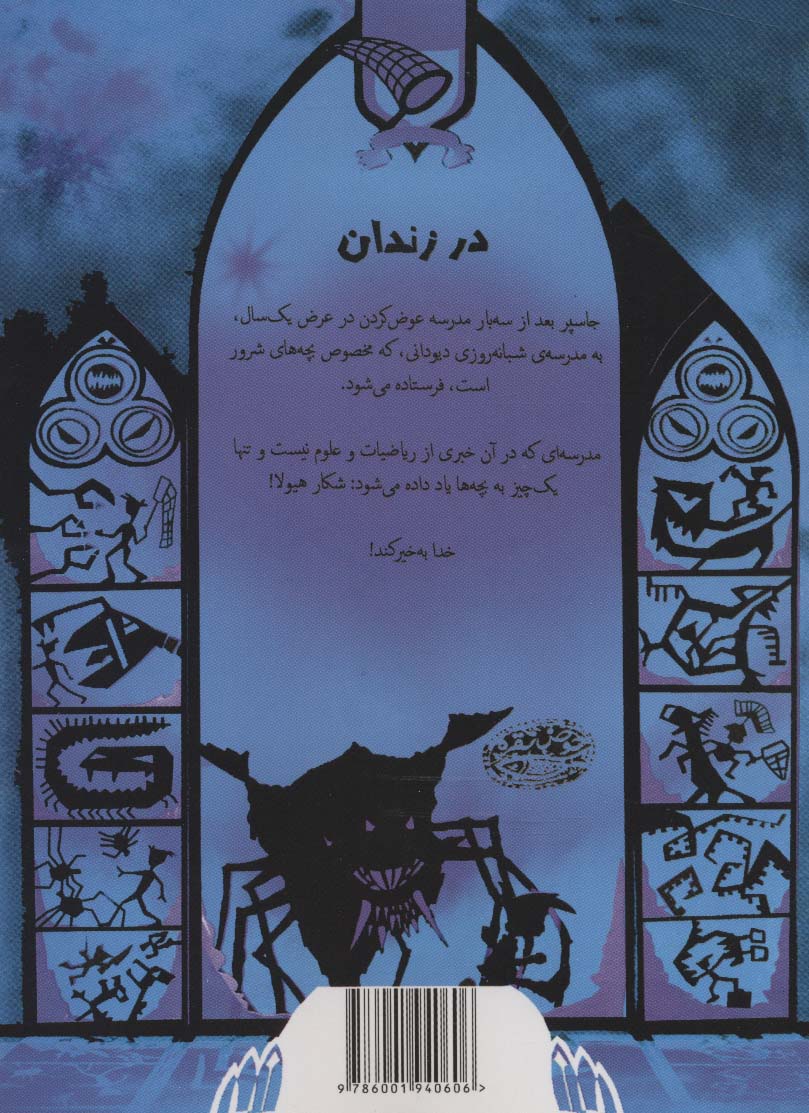 در زندان
جاسپر بعد از سه‌بار مدرسه عوض‌کردن در عرض یک‌سال،
به مدرسه‌ی شبانه‌روزی دیودانی، که مخصوص بچه‌های شرور
است، فرستاده می‌شود.
مدرسه‌ای که در آن خبری از ریاضیات و علوم نیست و تنها
یک‌چیز به بچه‌ها یاد داده می‌شود: شکار هیولا!
خدا به‌خیرکند!
9 786001 940606 >